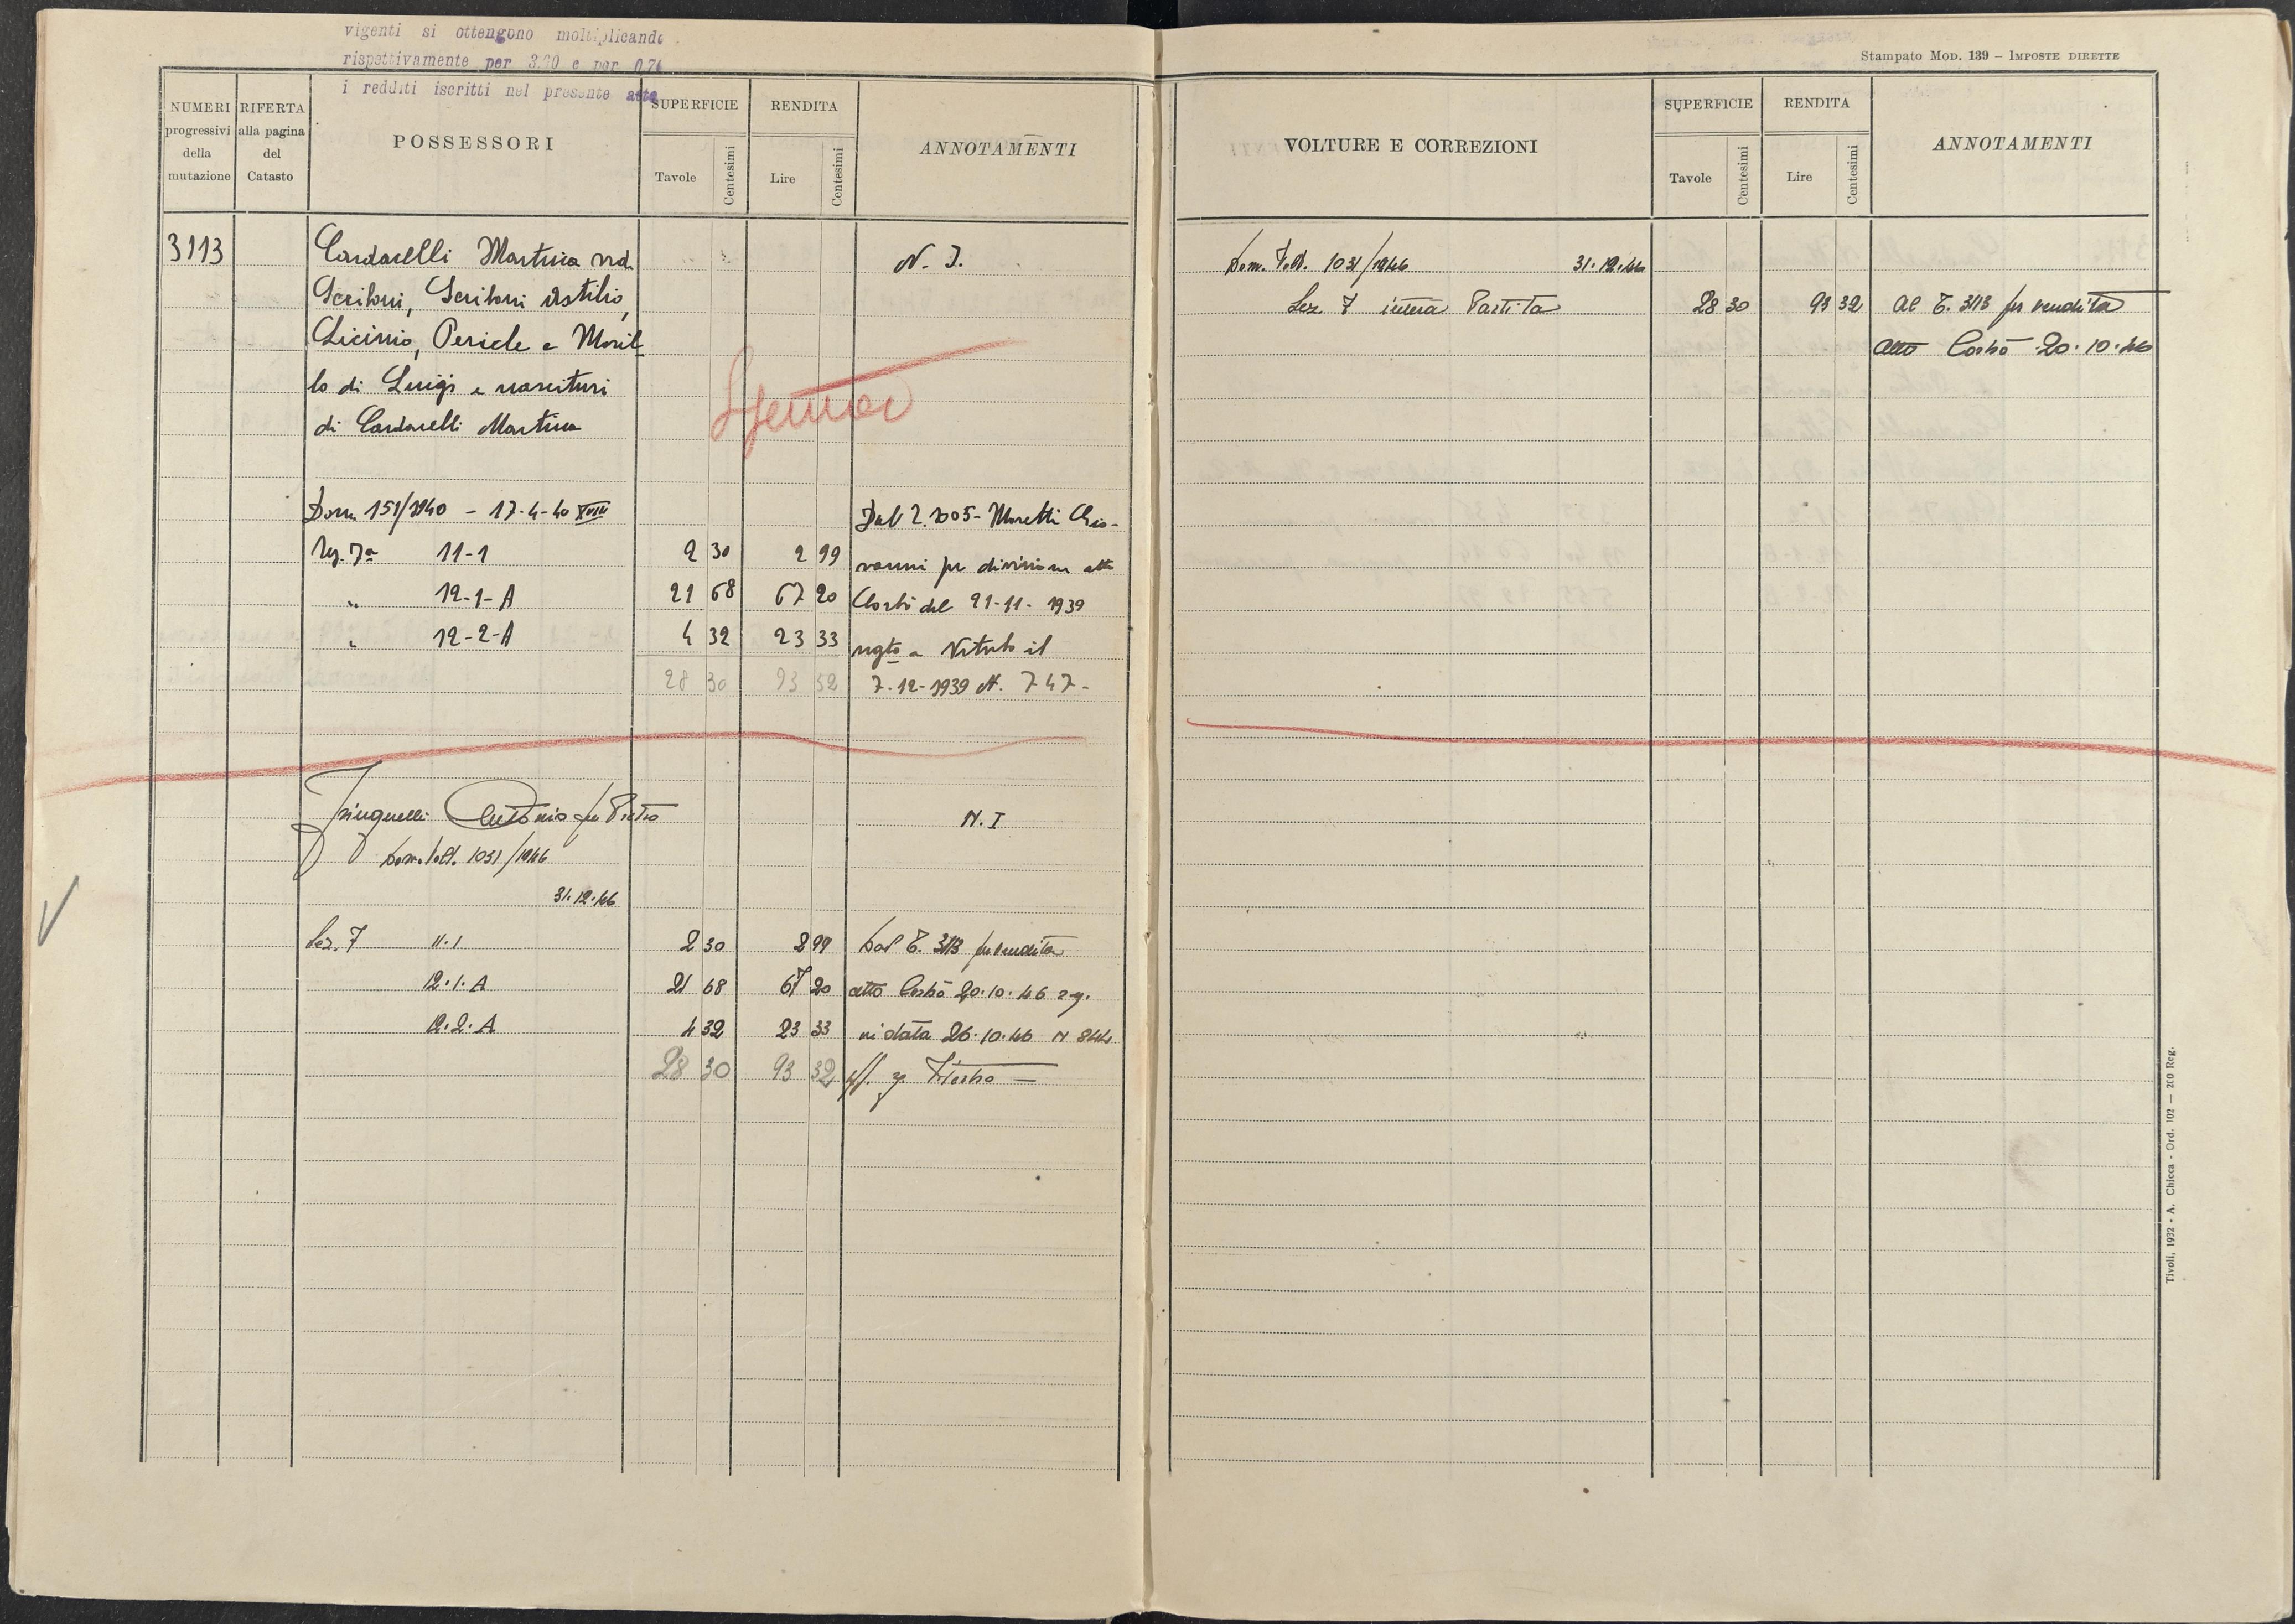 vigenti si ottengono moltiplicando
rispettivamente per 3.20 e per 0,74
i redditi iscritti nel presente atto
NUMERI progressivi della mutazione
RIFERTA alla pagina del Catasto
POSSESSORI
SUPERFICIE
Tavole Centesimi
RENDITA
Lire Centesimi
ANNOTAMENTI
3113
Cardarelli Martina ved. N. I.
Scriboni, Scriboni Astilio,
Licinio, Pericle e Moril-
lo di Luigi e nascituri
di Cardarelli Martina
Dom. 151/1940 - 17-4-40 XVIII Dal 2.3005 - Moretti Gio-
11-1 2 30 2 99 vanni per divisione atto
" 12-1-A 21 68 67 20 del 21-11-1939
" 12-2-A 4 32 23 33 il
28 30 93 52 7-12-1939 N. 747-
Antonio fu Pietro N. I
1031/1946
31.12.46
Sez. 7 11.1 2 30 2 99 Dal T. 3113 per vendita
12.1.A 21 68 67 20 atto 20.10.46
12.2.A 4 32 23 33 in data 26.10.46 N 844
28 30 93 32
Stampato Mod. 139 – Imposte dirette
VOLTURE E CORREZIONI
SUPERFICIE
Tavole Centesimi
RENDITA
Lire Centesimi
ANNOTAMENTI
1031/1946 31.12.46
Sez. 7 intera Partita 28 30 93 32 Al T. 3113 per vendita
atto 20.10.46
Tivoli, 1932 - A. Chicca - Ord. 102 — 200 Reg.